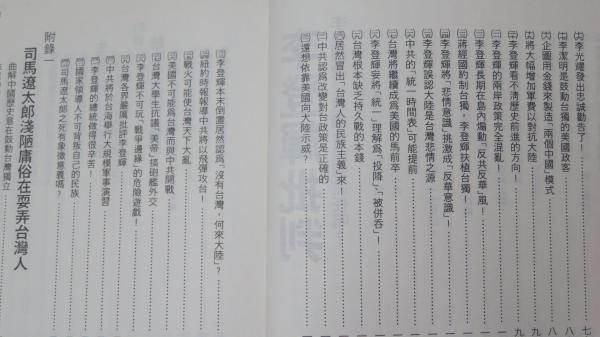 李光耀發出忠誠勸告了！
李潔明是鼓動台獨的美國政客
企圖用金錢來製造「兩個中國」模式
將大幅增加軍費以對抗大陸
李登輝看不清歷史前進的方向！
李登輝的兩岸政策完全混亂！
李登輝長期在島內煽動「反共反華」風！
蔣經國約制台獨，李登輝扶植台獨！
李登輝將「悲情意識」挑激成「反華意識」！
李登輝誤認大陸是台灣悲情之源
中共的「統一時間表」可能提前
台灣將繼續成爲美國的馬前卒
李登輝妄將「統一」理解爲「投降」、「被併吞」！
台灣根本缺乏持久戰的本錢
居然冒出「台灣人的民族主義」來！
中共認爲改變對台政策是正確的
還想依靠美國向大陸示威？
李登輝本末倒置居然認爲「沒有台灣，何來大陸」？
紐約時報報導中共將以飛彈攻台！
戰火可能使台灣天下大亂
美國不可能爲台灣而與中共開戰！
台灣大學生抗議「美帝」搞砲艦外交
李登輝不可玩「戰爭邊緣」的危險遊戲！
台灣各界嚴厲批評李登輝
中共將於台海舉行大規模軍事演習
李登輝的總統做得很辛苦！
國家領導人不可背叛自己的民族
司馬遼太郎之死有象徵意義嗎？
附錄一
司馬遼太郎淺陋庸俗在耍弄台灣人
曲解中國歷史意在鼓動台灣獨立